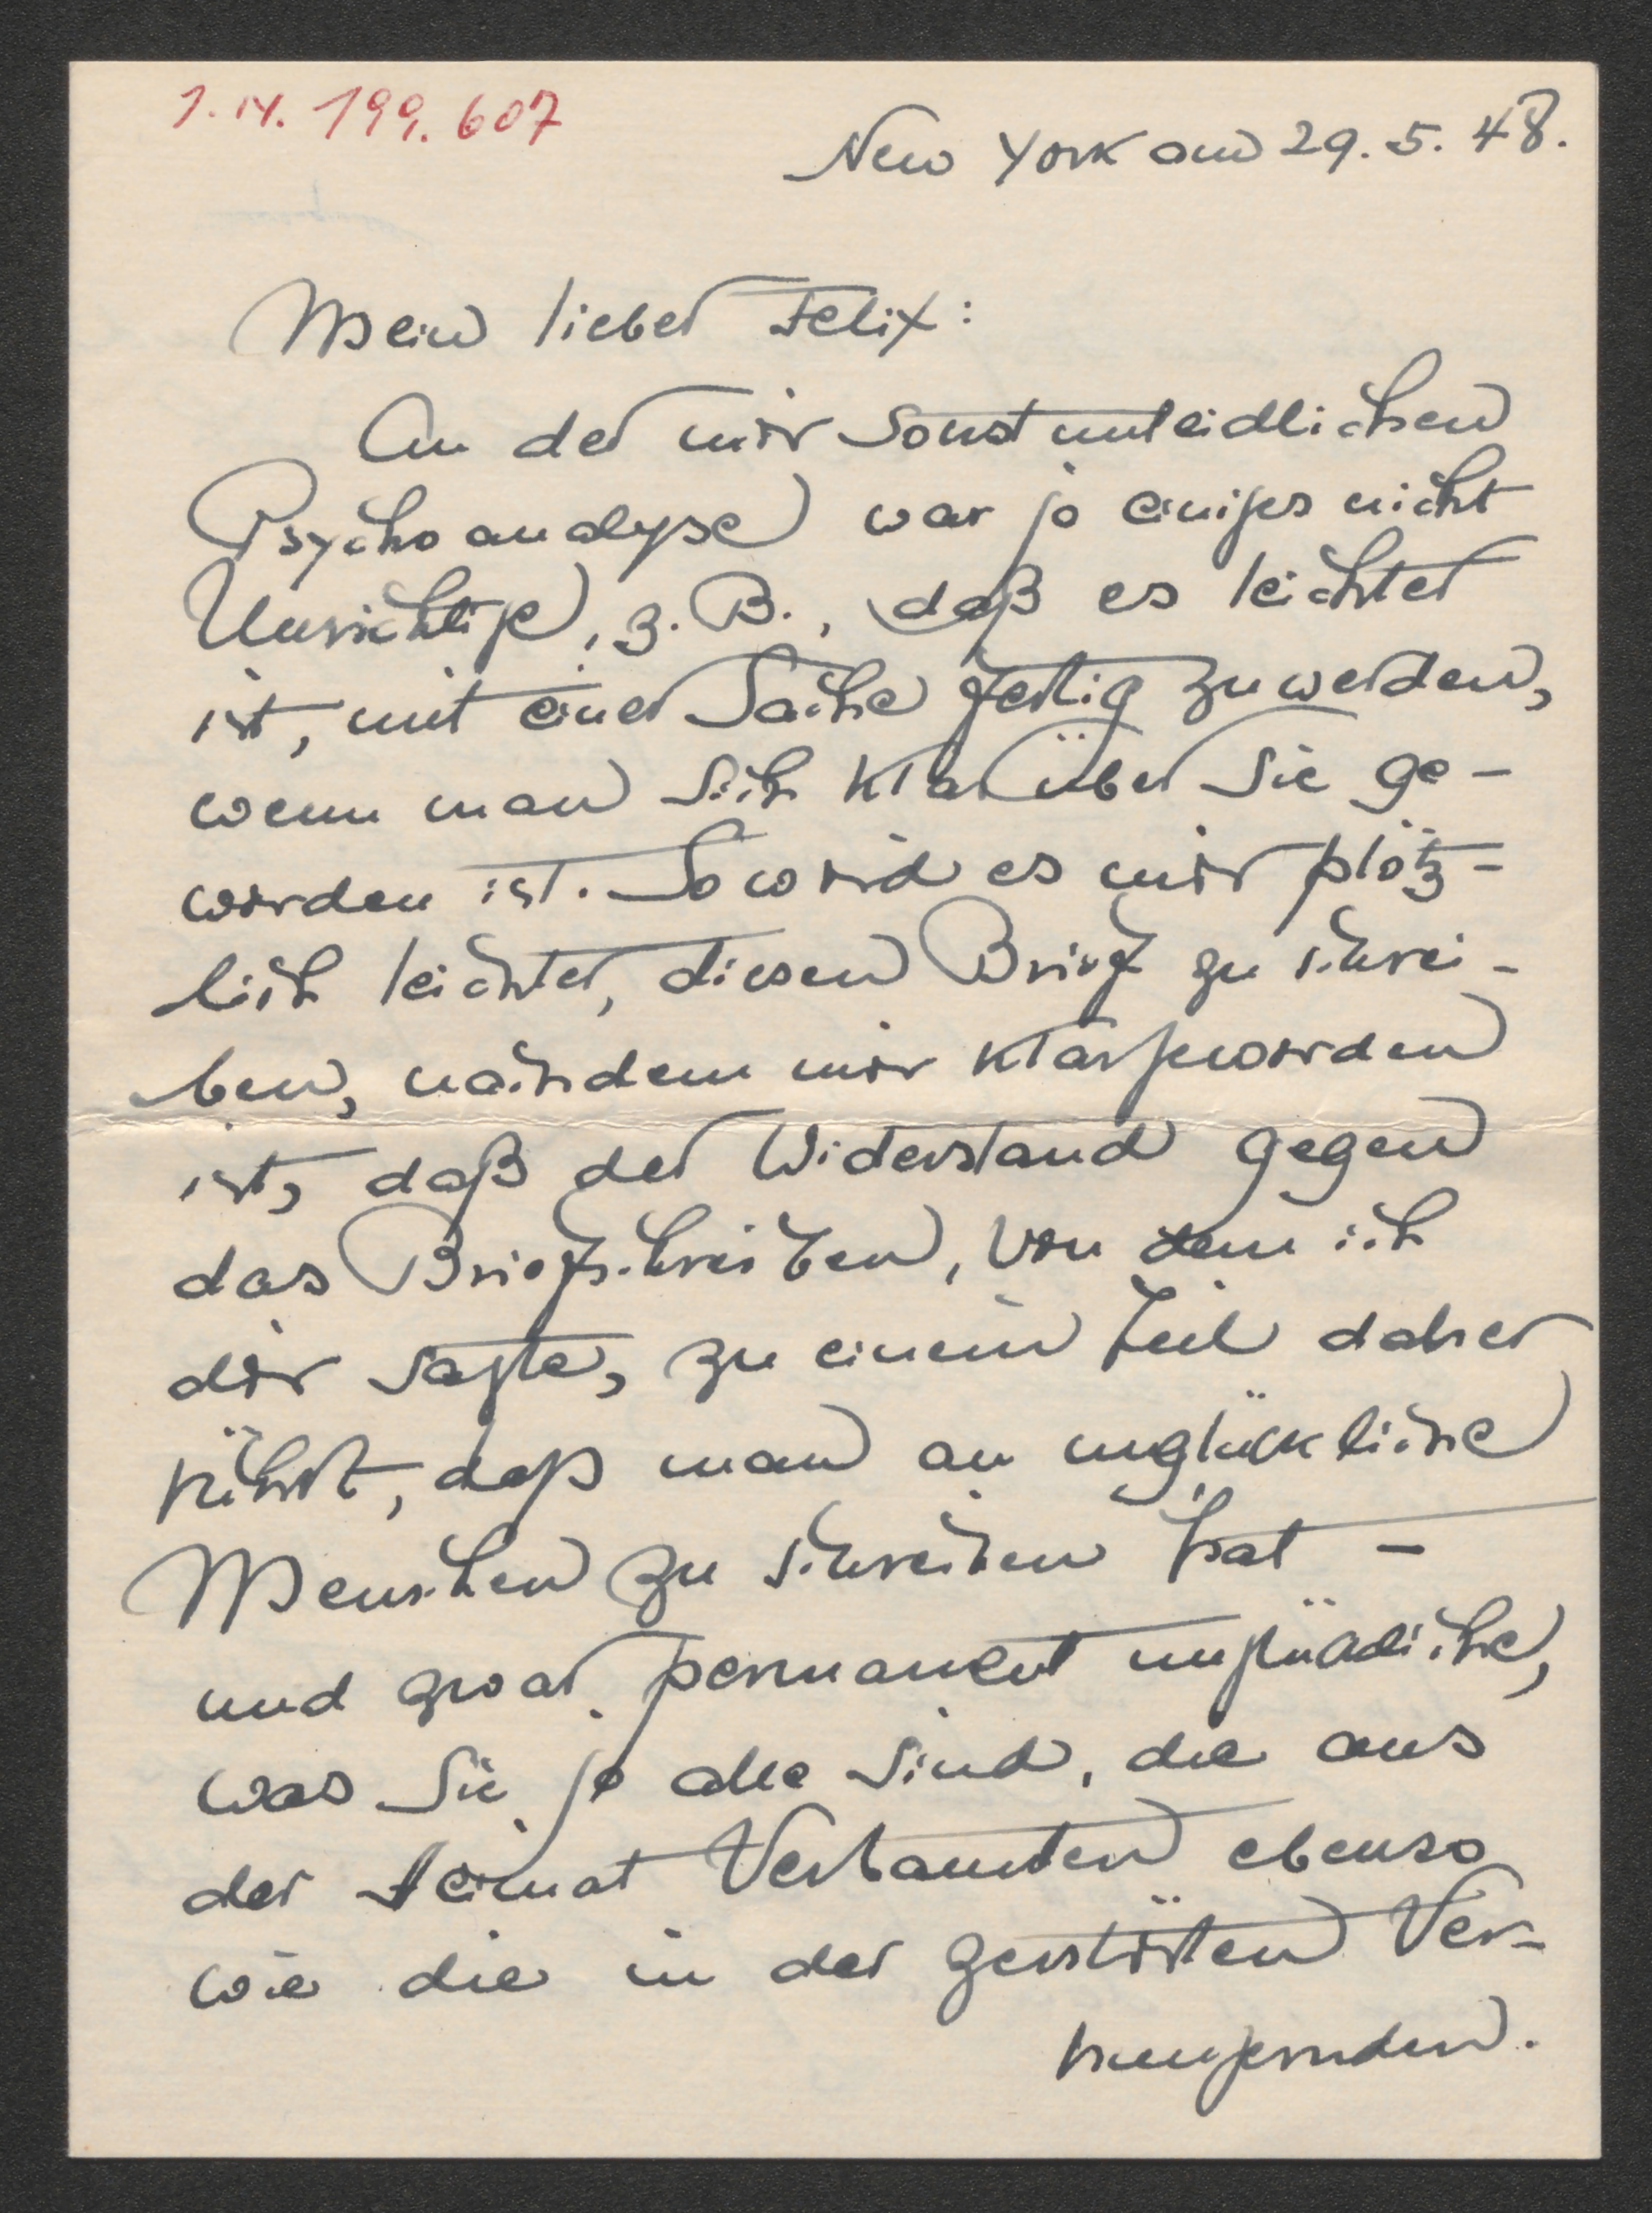 1. N. 199.607
New York am 29. 5. 48.
Mein lieber Felix:
An der mir sonst unleidlichen
Psychoanalyse war ja einiges nicht
Unrichtige, z. B., daß es leichter
ist, mit einer Sache fertig zu werden,
wenn man sich klar über sie ge-
worden ist. So wird es mir plötz-
lich leichter, diesen Brief zu schrei-
ben, nachdem mir klar geworden
ist, daß der Widerstand gegen
das Briefschreiben, von dem ich
dir sagte, zu einem Teil daher
rührt, daß man an unglückliche
Menschen zu schreiben hat –
und zwar permanent unglückliche,
was sie ja alle sind, die aus
der Heimat Verbannten ebenso
wie die in der zerstörten Ver-
hungernden.